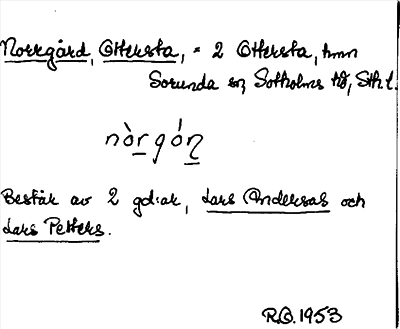 Norrgård, Ottersta, = 2 Ottersta, hmn
Sorunda sn, Sotholms hd, Sthl.
nòrgón
Består av 2 gdar, Lars Andersas och
Lars Petters.
R.O. 1953